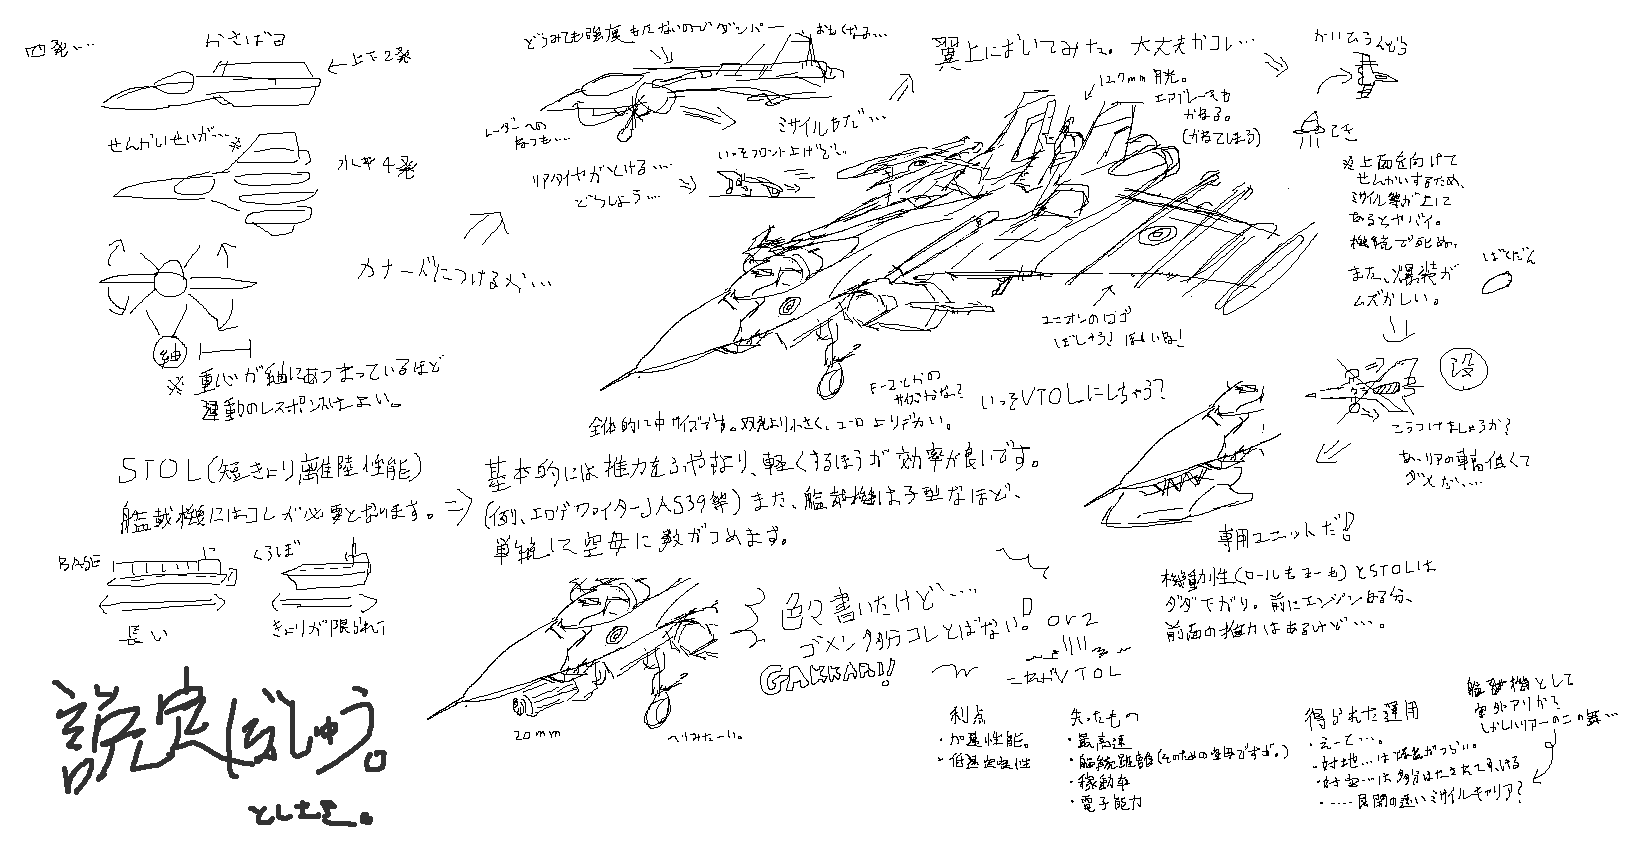 四発…
かさばる
←上下2発
せんかいせいが…※
水平4発
※重心が軸にあつまっているほど
運動のレスポンスはよい。
軸
カナードにつけるが…
どうみても強度もたないのでダンパー
おもくなる…
レーダーへの
ミサイルもだ…
リアタイヤがとける…
どうしよう…
いっそフロント上げとく。
翼上においてみた。大丈夫かコレ…
エアブレーキも
かねる。
(かねてしまう)
てき
※上面を向けて
せんかいするため、
ミサイル等が上にて
あるとヤバイ。
機銃で死ぬ。
また、爆装が
ムズかしい。
ばくだん
ユニオンのロゴ
ぼしゅう!ほしいな!
F-2とかの
全体的に中サイズです。双発より小さく、ユーロよりデカい。
いっそVTOLにしちゃう?
没
こうつけましょうか?
あ、リアの車高低くて
ダメだ…
専用ユニットだ!
機動性(ロールもヨーも)とSTOLは
ダダ下がり。前にエンジンある分、
前面の推力はあるけど…。
STOL(短きょり離陸性能)
艦載機にはコレが必要となります。⇒
基本的には推力をふやすより、軽くするほうが効率が良いです。
(例、エログファイターJAS39等)また、艦載機は小型なほど、
単純に空母に数がつめます。
BASE
長い
くうぼ
きょりが限られて
20mm
へりみたーい。
色々書いたけど…
ゴメン多分コレとばない! orz
GAKKARI!
これがVTOL
利点
・加速性能。
・低速安定性
失ったもの
・最高速
・航続距離(そのための空母ですが。)
・稼動率
・電子能力
得られた運用
・えーと…。
・対地…は爆装がつらい。
・……足の速いミサイルキャリア?
艦載機として
案外アリかも
しかしハリアーの二の舞…
設定ぼしゅう。
としたを。